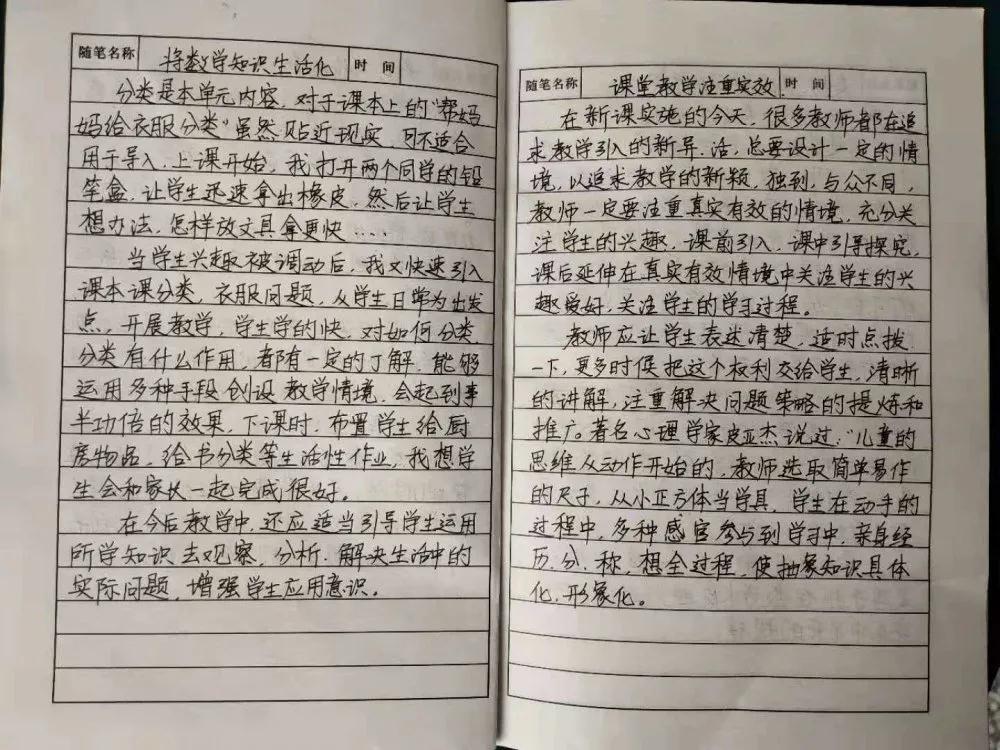 随笔名称 将数学知识生活化 时 间
分类是本单元内容，对于课本上的"帮妈
妈给衣服分类"虽然贴近现实，可不适合
用于导入，上课开始，我打开两个同学的铅
笔盒，让学生迅速拿出橡皮，然后让学生
想办法，怎样放文具拿更快……
当学生兴趣被调动后，我又快速引入
课本课分类，衣服问题，从学生日常为出发
点，开展教学，学生学的快，对如何分类，
分类有什么作用，都有一定的了解，能够
运用多种手段创设教学情境，会起到事
半功倍的效果，下课时，布置学生给厨
房物品，给书分类等生活性作业，我想学
生会和家长一起完成很好。
在今后教学中，还应适当引导学生运用
所学知识去观察，分析，解决生活中的
实际问题，增强学生应用意识。
随笔名称 课堂教学注重实效 时 间
在新课实施的今天，很多教师都在追
求教学引入的新异、活，总要设计一定的情
境，以追求教学的新颖，独到，与众不同，
教师一定要注重真实有效的情境，充分关
注学生的兴趣，课前引入，课中引导探究，
课后延伸在真实有效情境中关注学生的兴
趣爱好，关注学生的学习过程。
教师应让学生表述清楚，适时点拨
一下，更多时候把这个权利交给学生，清晰
的讲解，注重解决问题策略的提炼和
推广。著名心理学家皮亚杰说过："儿童的
思维从动作开始的，教师选取简单易作
的尺子，从小正方体当学具，学生在动手的
过程中，多种感官参与到学习中，亲身经
历，分，称，想全过程，使抽象知识具体
化，形象化。